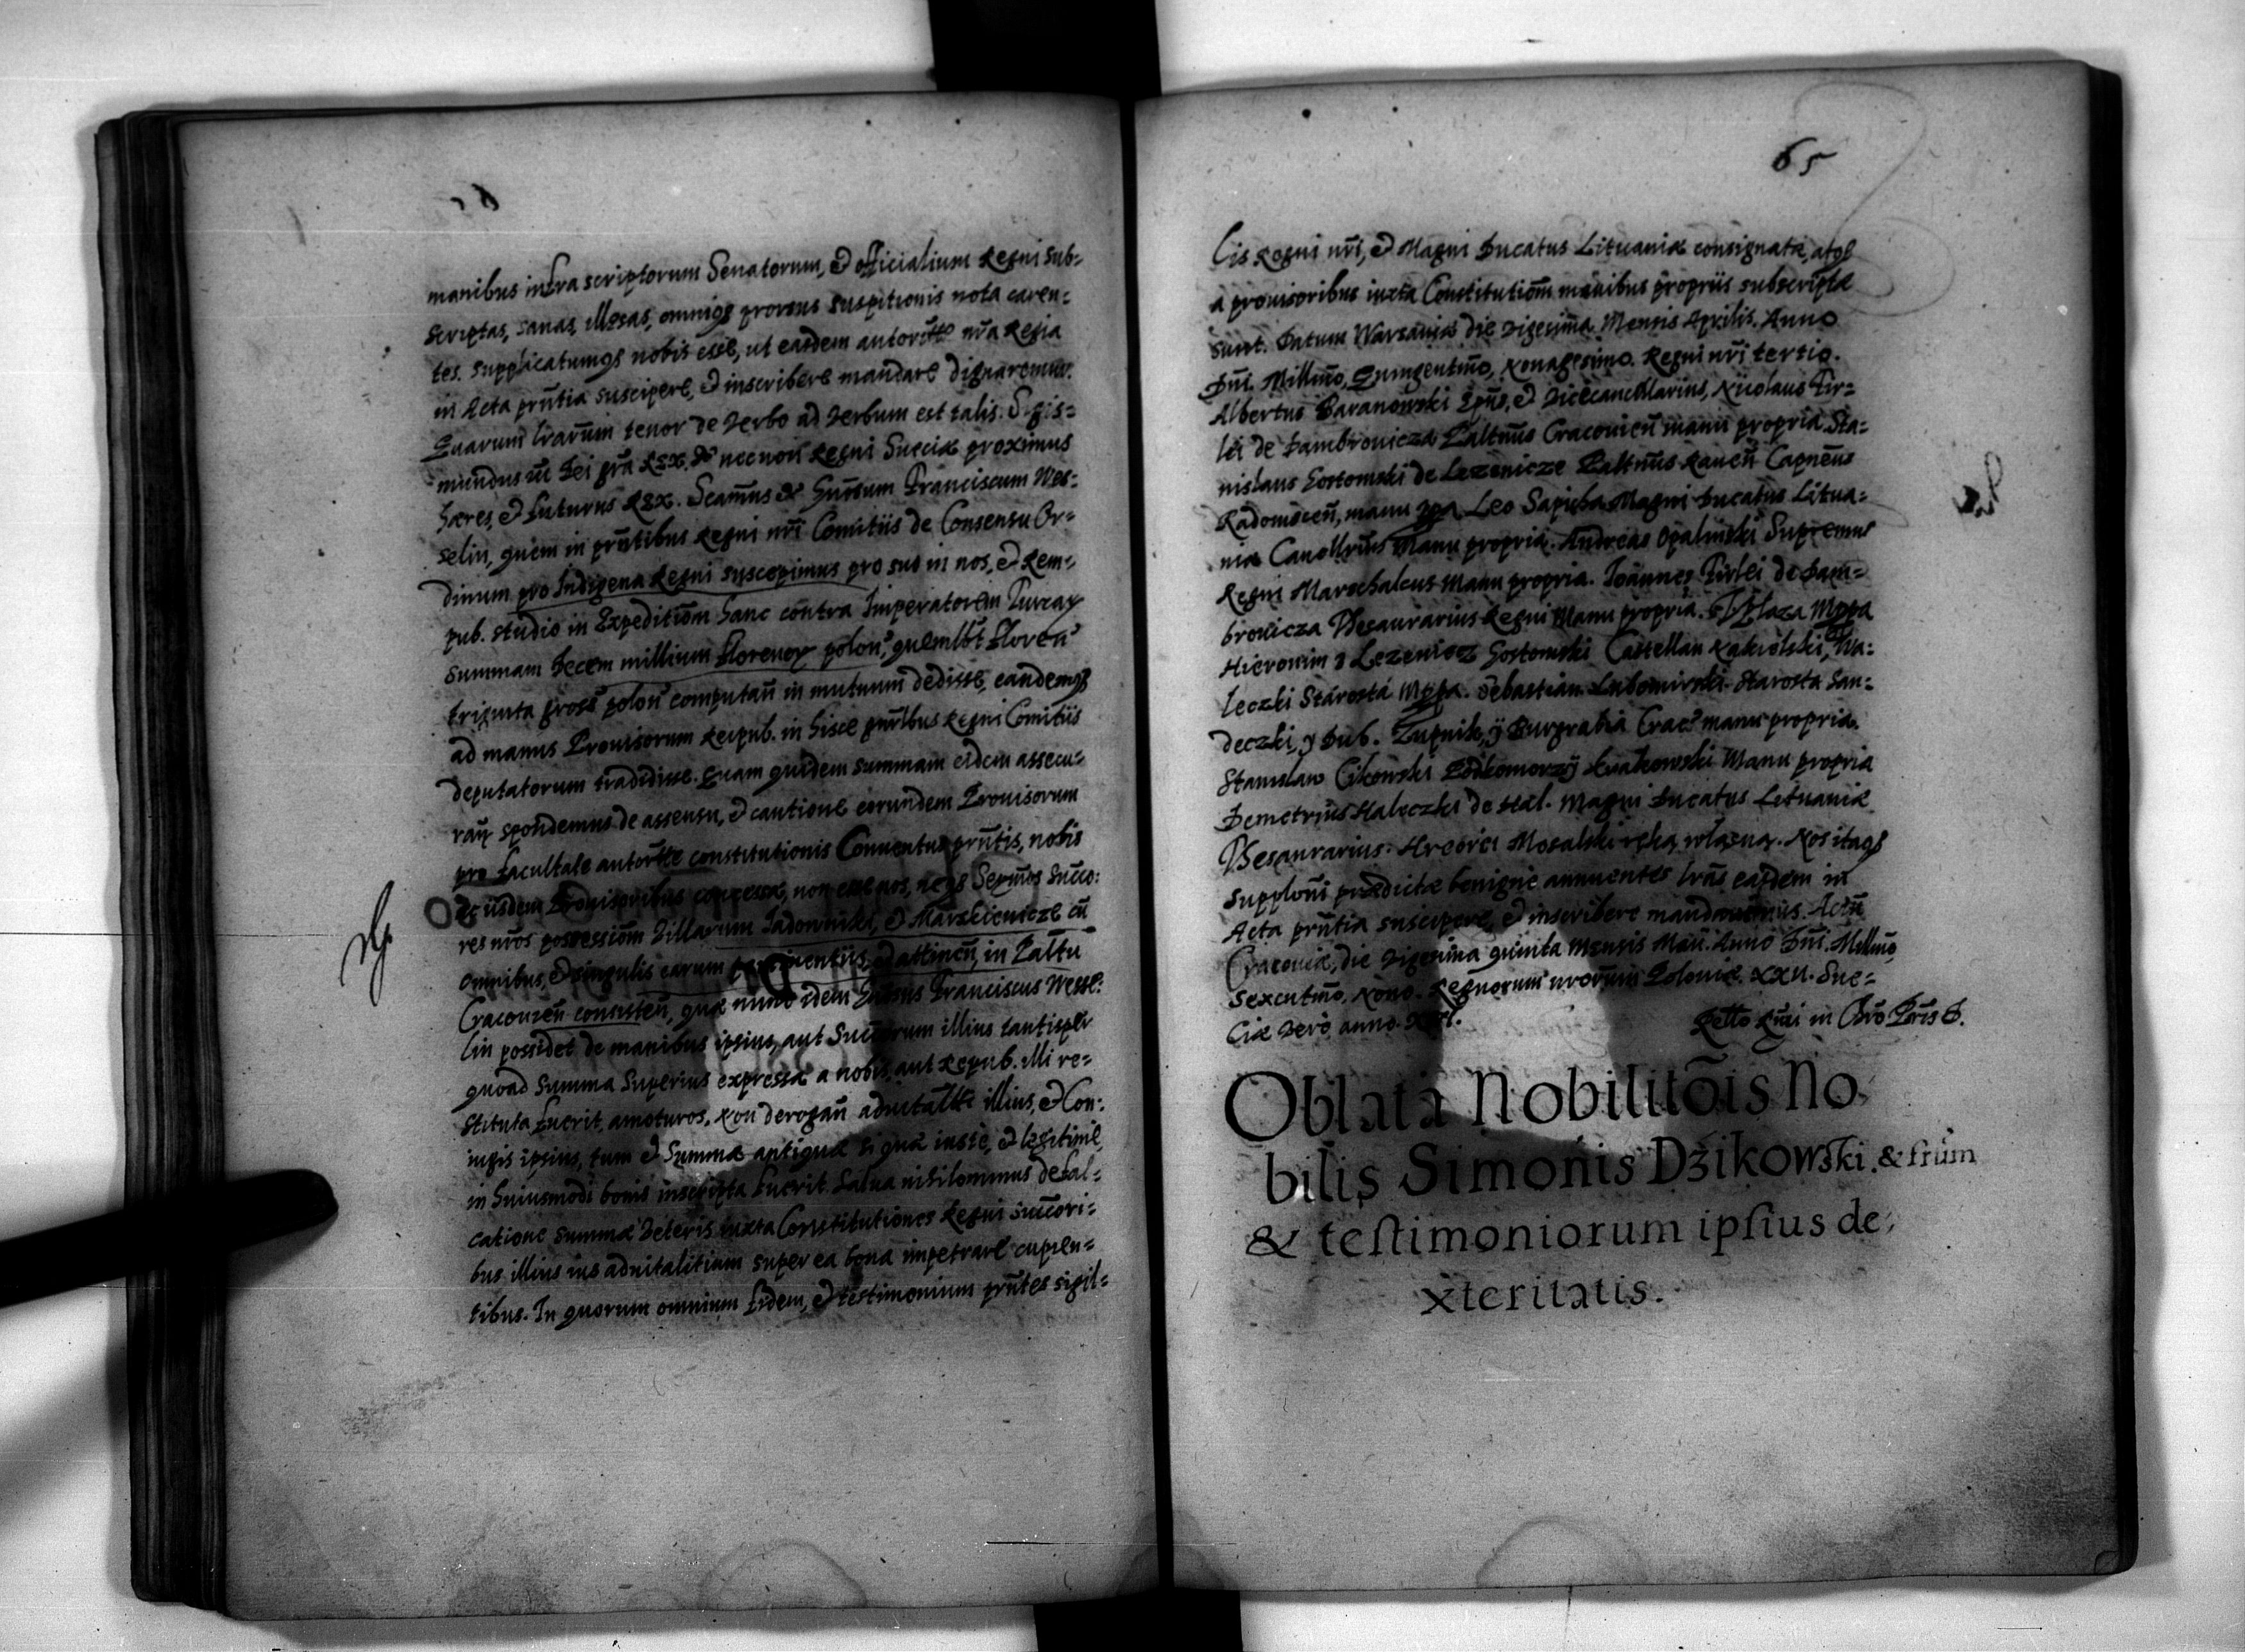 manibus infra scriptorum Senatorum, & officialium Regni sub=
scriptas, sanas, illesas, omniqз prorsus suspitionis nota caren=
tes. supplicatumqз nobis esse, ut easdem autoritte nr̃a Regia
in Acta prñtia suscipere, & inscribere mandare dignaremur.
Quarum lrarũm tenor de verbo ad verbum est talis. Sigis=
mundus III Dei gr̃a Rex &c necnon Regni Sueciæ proximus
Hæres, & futurus Rex. Franciscum Wes=
selin, quem in prñtibus Regni nr̃i Comitiis de Consensu Or=
dinum pro Indigena Regni suscepimus pro suo in nos, & Rem=
pub. studio in Expeditiom̃ hanc contra Imperatorem Turcaꝝ
summam Decem millium florenoꝝ polon, quemlbt floren
triginta gross polon computañ in mutuum dedisse, eandemqз
ad manus Prouisorum Reipub. in hisce prñtbus Regni Comitiis
deputatorum tradidisse. Quam quidem summam eidem assecu=
rañ spondemus de assensu, & cautione eorundem Prouisorum
pro facultate autortte constitutionis Conuentus prñtis, nobis
ac iisdem Prouisoribus concessa, non esse nos, neqз Sermos Succo:
res nr̃os possessiom̃ Villarum Jadowniki, & Marskienicze cũ
omnibus, & singulis earum & attineñ, in Paltũ
Cracouień consisteñ, quæ nunc idem Franciscus Wesse:
lin possidet de manibus ipsius, aut Succorum illius tantisper
quoad summa superius expressa a nobis, aut Repub. illi re=
stituta fuerit, amoturos, Non derogañ aduitaltti illius, & Con:
iugis ipsius, tum & Summæ antiquæ si qua iuste, & legitime
in huiusmodi bonis inscripta fuerit. Salua nihilominus defal=
catione summæ veteris iuxta Constitutiones Regni succori=
bus illius ius aduitalitium super ea bona impetrare cupien=
tibus. In quorum omnium fidem, & testimonium prñtes sigil=
65
lis Regni nr̃i, & Magni Ducatus Lituaniæ consignatæ, atqз
a prouisoribus iuxta Constitutiom̃ manibus propriis subscriptæ
sunt. Datum Warsauiæ die vigesima Mensis Aprilis. Anno
Dñi. Millmo, Quingentmo, Nonagesimo. Regni nr̃i tertio.
Albertus Baranowski Epũs, & Vicecancellarius, Nicolaus Fir=
lei de Dambrouicza Paltñus Cracouień manu propria. Sta=
nislaus Gostomski de Lezenicze Paltñus Raueñ Capneũs
Radomsceñ, manu ppa Leo Sapieha Magni Ducatus Litua=
niæ Cancllrĩus Manu propria. Andreas Opalinski Supremus
Regni Marschalcus manu propria. Ioannes Firlei de Dam=
brouicza Thesaurarius Regni Manu propria. Mppa
Hieronim z Lezenicz Gostomski Castellan Nakielski, Wa=
leczki Starosta Mppa. Sebastian Lubomirski Starosta San=
deczki, y Dub. Zupnik, y Burgrabia Crac. manu propria.
Stanislaw Cikowski Podkomorzÿ krakowski Manu propria
Demetrius Haleczki de Hal. Magni Ducatus Lituaniæ
Thesaurarius. Hrehori Mosalski ręką własną. Nos itaqз
supploni prædictæ benigne annuentes lrãs easdem in
Acta prñtia suscipere, & inscribere mandauimus. Actũ
Cracouiæ, die vigesima quinta Mensis Maii. Anno Dñi. Millmo,
Sexcentmo, Nono. Regnorum nrorũm Poloniæ. XXII. Sue=
ciæ vero anno. XVI.
Oblata Nobilitõis No
bilis Simonis Dzikowski. & frũm
& testimoniorum ipsius de,
xteritatis.